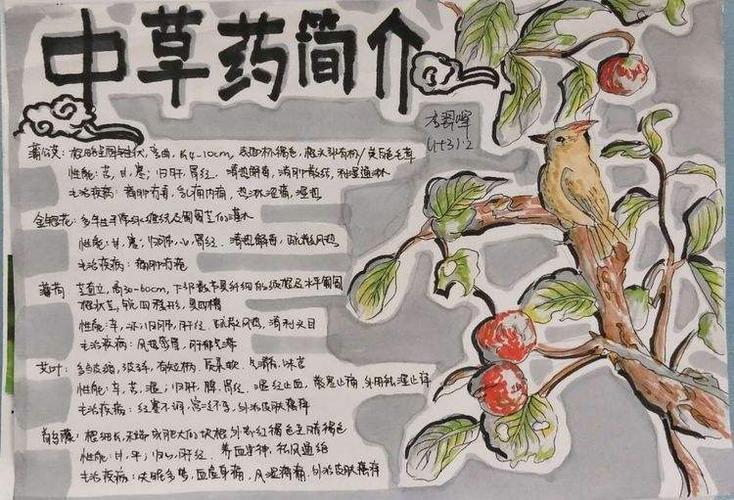 中草药简介
李羿晖
蒲公英：根呈圆锥状，弯曲，长4-10cm，表面棕褐色，根头部有棕/黄白色毛茸
性能：苦，甘，寒；归肝，胃经。清热解毒，消肿散结，利湿通淋
主治疾病：痈肿疔毒，乳痈内痈，热淋涩痛，湿热
金银花：多年生半常绿缠绕及匍匐茎的灌木
性能：甘，寒，归肺，心，胃经。清热解毒，疏散风热
主治疾病：痈肿疔疮
薄荷：茎直立，高30-60cm，下部数节具纤细的须根及水平匍匐
根状茎，锐四棱形，具四槽
性能：辛，凉；归肺，肝经，疏散风热，清利头目
主治疾病：风热感冒，肝郁气滞
艾叶：
性能：辛，苦，温；归肝，脾，肾经。温经止血，散寒止痛，外用祛湿止痒
主治疾病：经寒不调，宫冷不孕，外治皮肤瘙痒
首乌藤：根细长，末端成肥大的块根，外表红褐色至暗褐色
性能：甘，平；归心，肝经。养血安神，祛风通络
主治疾病：失眠多梦，血虚身痛，风湿痹痛，外治皮肤瘙痒